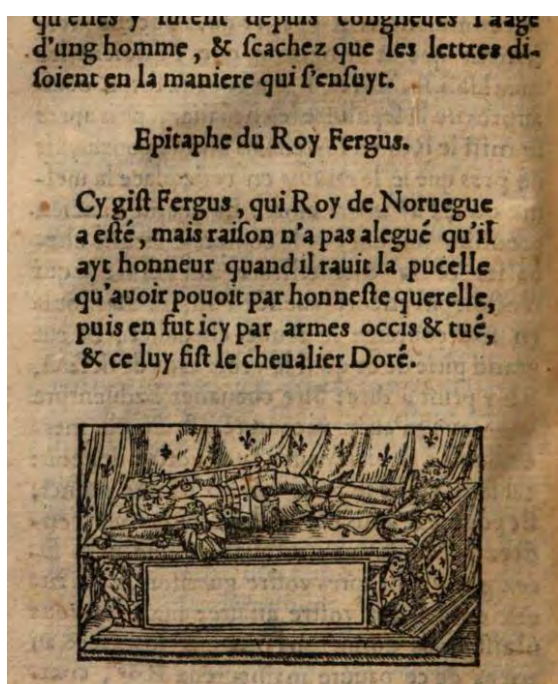 qu'elles y furent depuis congneues l'aage
d'ung homme, & ſcachez que les lettres di-
ſoient en la maniere qui ſ'enſuyt.
Epitaphe du Roy Fergus.
Cy giſt Fergus, qui Roy de Noruegue
a eſté, mais raiſon n'a pas alegué qu'il
ayt honneur quand il rauit la pucelle
qu'auoir pouoit par honneſte querelle,
puis en fut icy par armes occis & tué,
& ce luy fiſt le cheualier Doré.